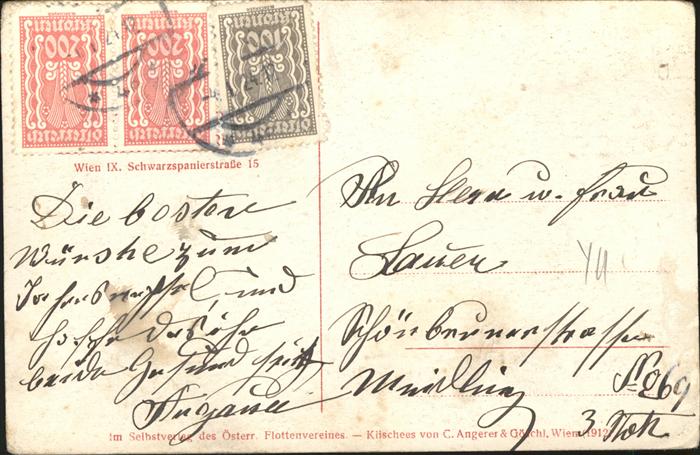 200 Kronen Österreich
200 Kronen Österreich
100 Kronen Österreich
Wien IX. Schwarzspanierstraße 15
Die besten
Wünsche zum
Jahreswechsel, und
hoffe das ihr
beide Gesund seit
An Herr u. Frau
Lauer
Schönbrunerstrasse
Meidling No 269
3 Stock
Im Selbstverlag des Österr. Flottenvereines. — Klischees von C. Angerer & Göschl, Wien (1912)